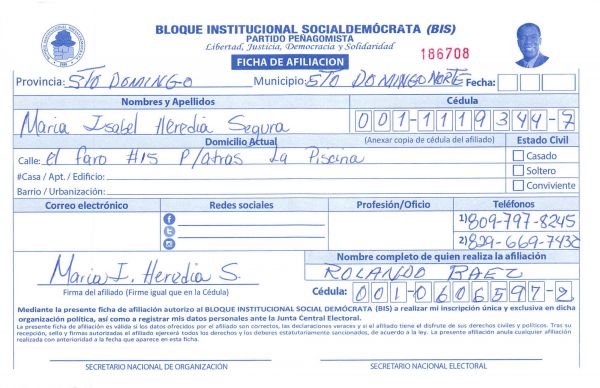 BLOQUE INSTITUCIONAL SOCIALDEMÓCRATA (BIS)
PARTIDO PEÑAGOMISTA
Libertad, Justicia, Democracia y Solidaridad
186708
FICHA DE AFILIACION
Provincia: STO DOMINGO Municipio: STO DOMINGO NORTE Fecha:
Nombres y Apellidos Cédula
Maria Isabel Heredia Segura 001-1119344-7
Domicilio Actual (Anexar copia de cédula del afiliado) Estado Civil
Calle: el faro #15 P/atras La Piscina Casado
#Casa / Apt. / Edificio: Soltero
Barrio / Urbanización: Conviviente
Correo electrónico Redes sociales Profesión/Oficio Teléfonos
1) 809-797-8245
2) 829-669-7432
Nombre completo de quien realiza la afiliación
Maria I. Heredia S. ROLANDO BAEZ
Firma del afiliado (Firme igual que en la Cédula) Cédula: 001-0606597-2
Mediante la presente ficha de afiliación autorizo al BLOQUE INSTITUCIONAL SOCIAL DEMÓCRATA (BIS) a realizar mi inscripción única y exclusiva en dicha
organización política, así como a registrar mis datos personales ante la Junta Central Electoral.
La presente ficha de afiliación es válida si los datos ofrecidos por el afiliado son correctos, las declaraciones veraces y si el afiliado tiene el disfrute de sus derechos civiles y políticos. Tras su
recepción, sello y firmas autorizadas el afiliado ejercerá todos los derechos y los deberes estatutariamente sancionados, de acuerdo a la ley. La presente afiliación anule cualquier afiliación
realizada con anterioridad a la fecha que aparece en esta ficha.
SECRETARIO NACIONAL DE ORGANIZACIÓN SECRETARIO NACIONAL ELECTORAL